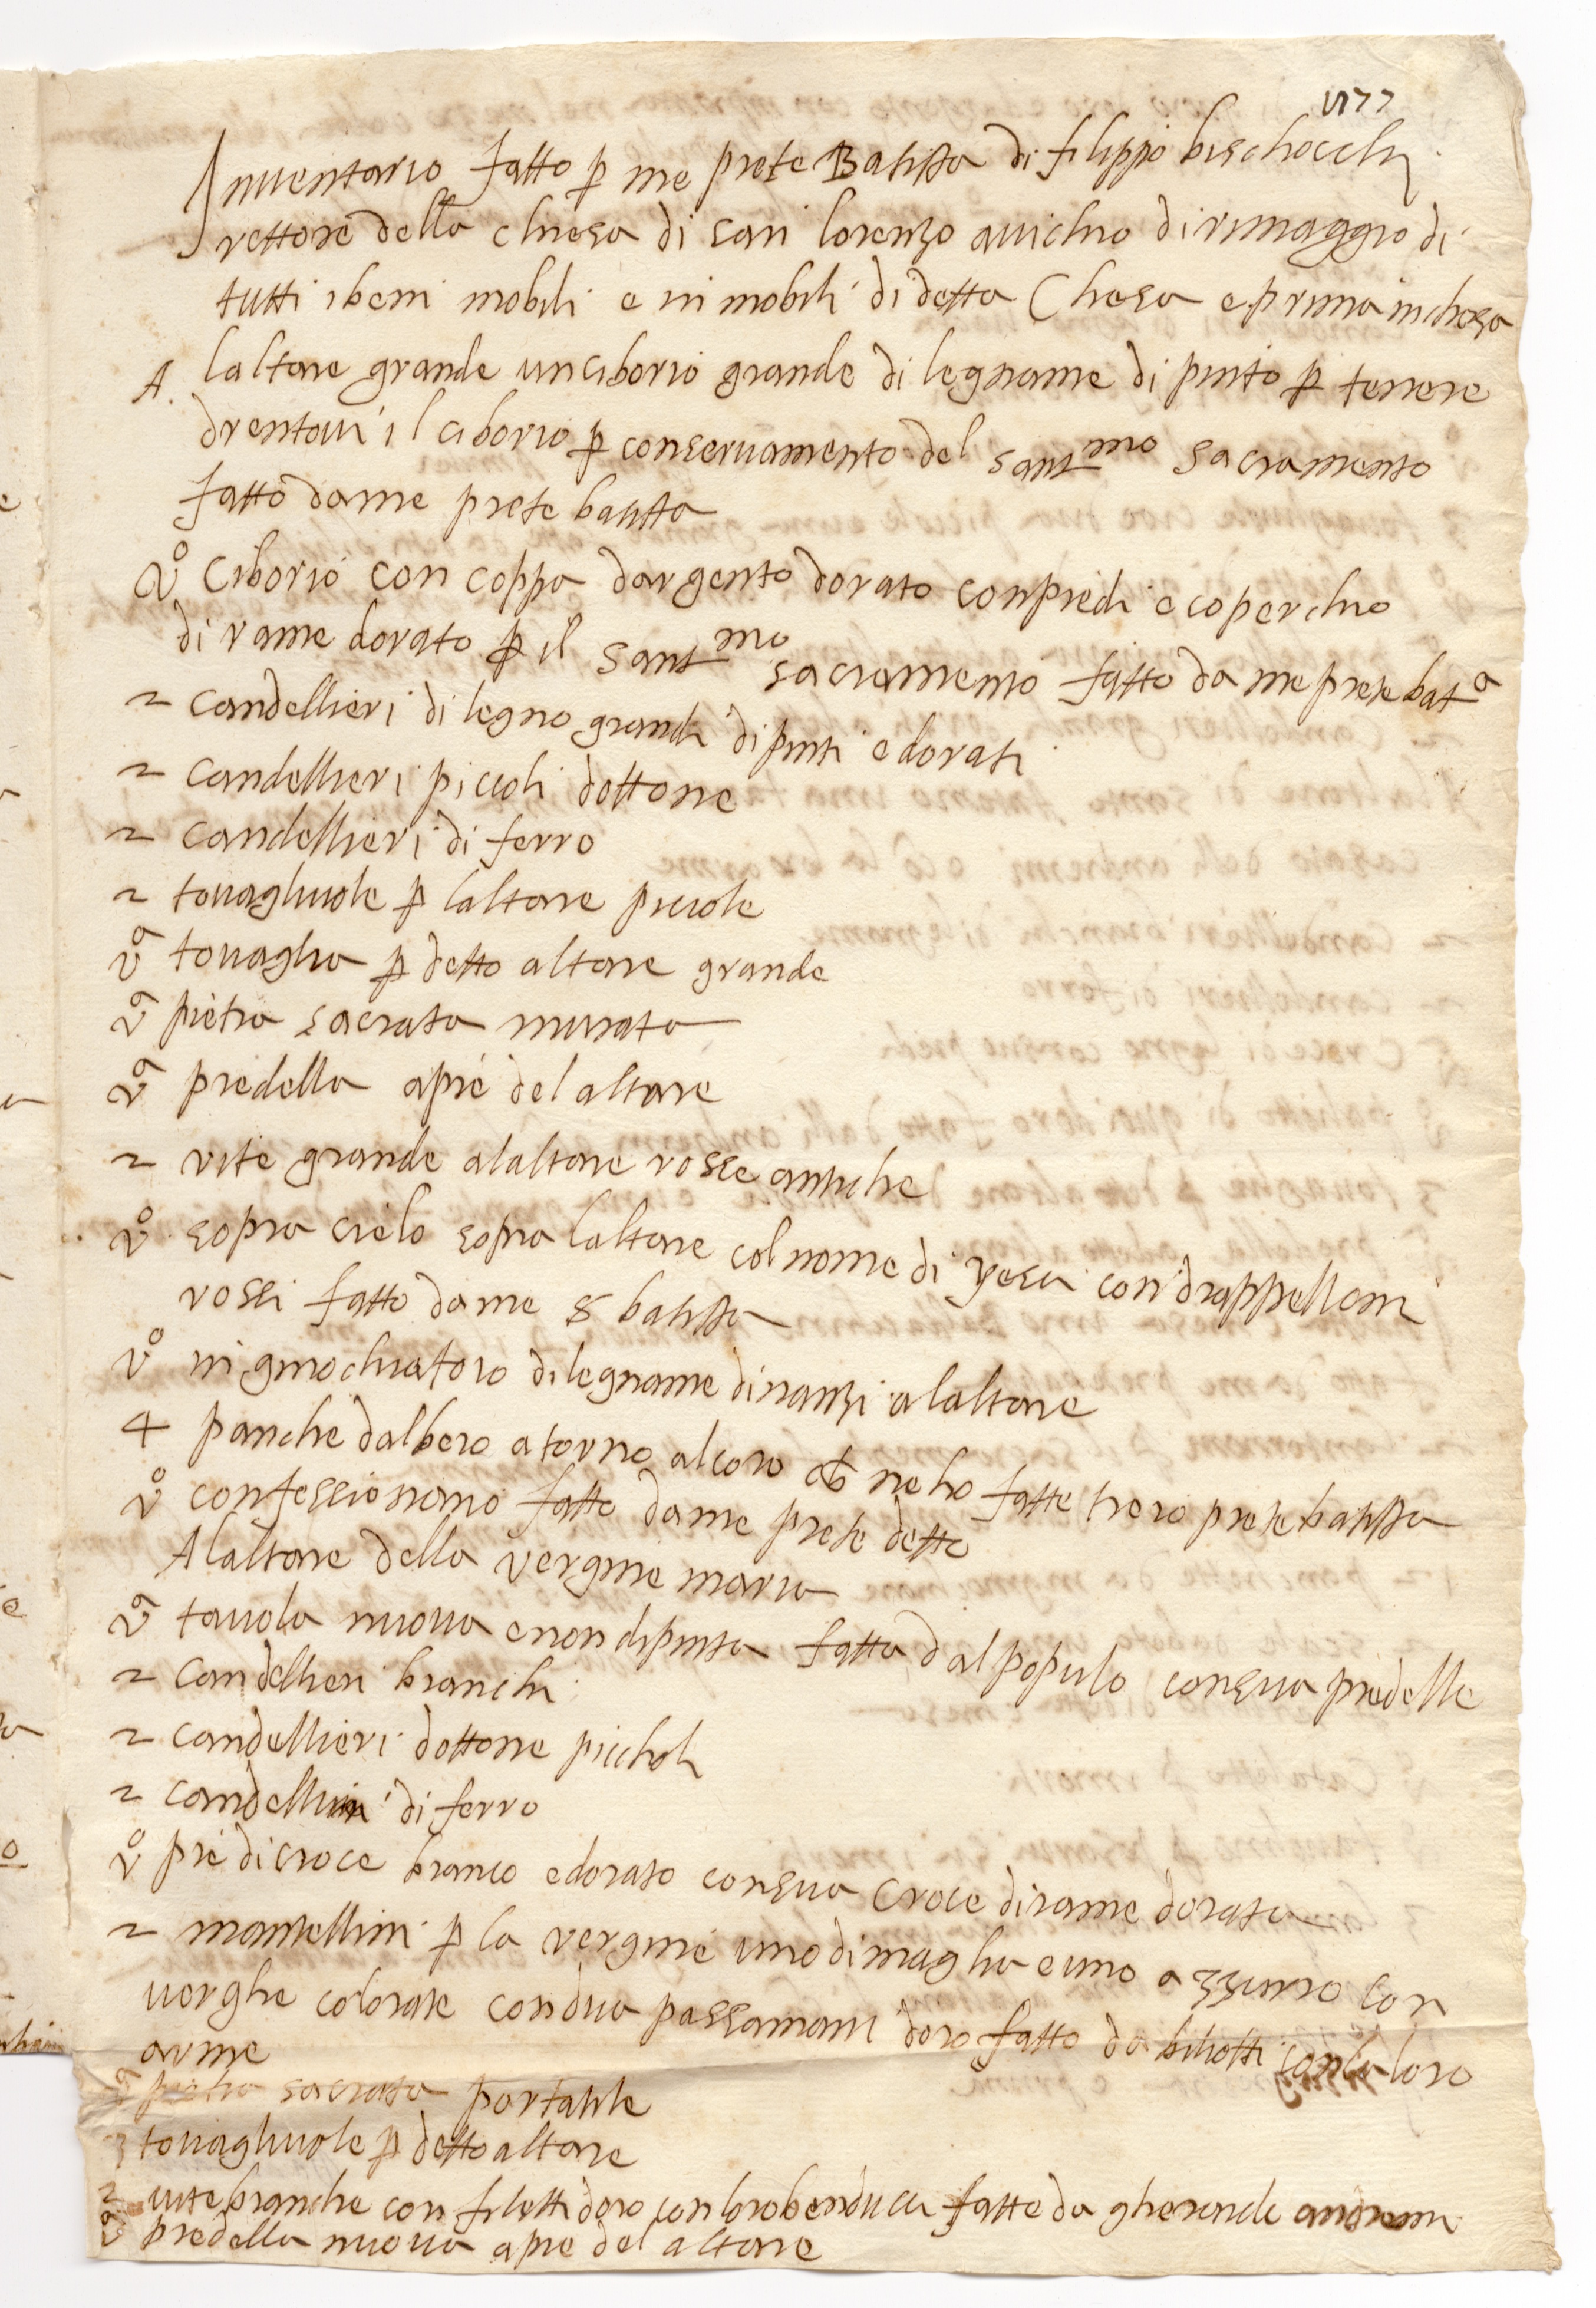 1577
Inuentario fatto p me prete Batista di filippo bischocchi
rettore della chiesa di san lorenzo auichio dirimaggio di
tutti ibeni mobili e inmobili di detta Chiesa e prima inchiesa
A. laltare grande unciborio grande di legname di pinto p tenere
drentoui il ciborio p conseruamento del santmo sacramento
fatto dame prete batista
Vo Ciborio con coppa dargento dorato conpiedi e coperchio
di rame dorato p il santmo sacramento fatto da me prete bata
2 candellieri di legno grandi dipinti e dorati
2 candellieri piccoli dottone
2 candellieri di ferro
2 touagliuole p laltare picciole
va touaglia p detto altare grande
va pietra sacrata murata
va predella apie del altare
2 vite grande alaltare rosse antiche
vo sopra cielo sopra laltare col nome di yesu con drappelloni
rossi fatto dame batista
vo inginochiatoro dilegname dinanzi alaltare
4 panche dalbero atorno alcoro ne ho fatte tre io prete batista
vo confessionario fatto dame prete detto
Alaltare della vergine maria
va tauola nuoua e non dipinta fatta dal populo con sua predelle
2 candellieri bianchi
2 candellieri dottone piccholi
2 candellieri di ferro
vo pie di croce bianco e dorato con sua croce di rame dorata
2 mantellini p la vergine uno di maglia e uno azzurro con
uerghe colorate con dua passamani doro fatto da biliotti con la loro
arme
va pietra sacrata portatile
3 touagliuole p detto altare
2 uite bianche con filetti doro con loro benducci fatte da gherardi andreini
va predella nuoua apie del altare